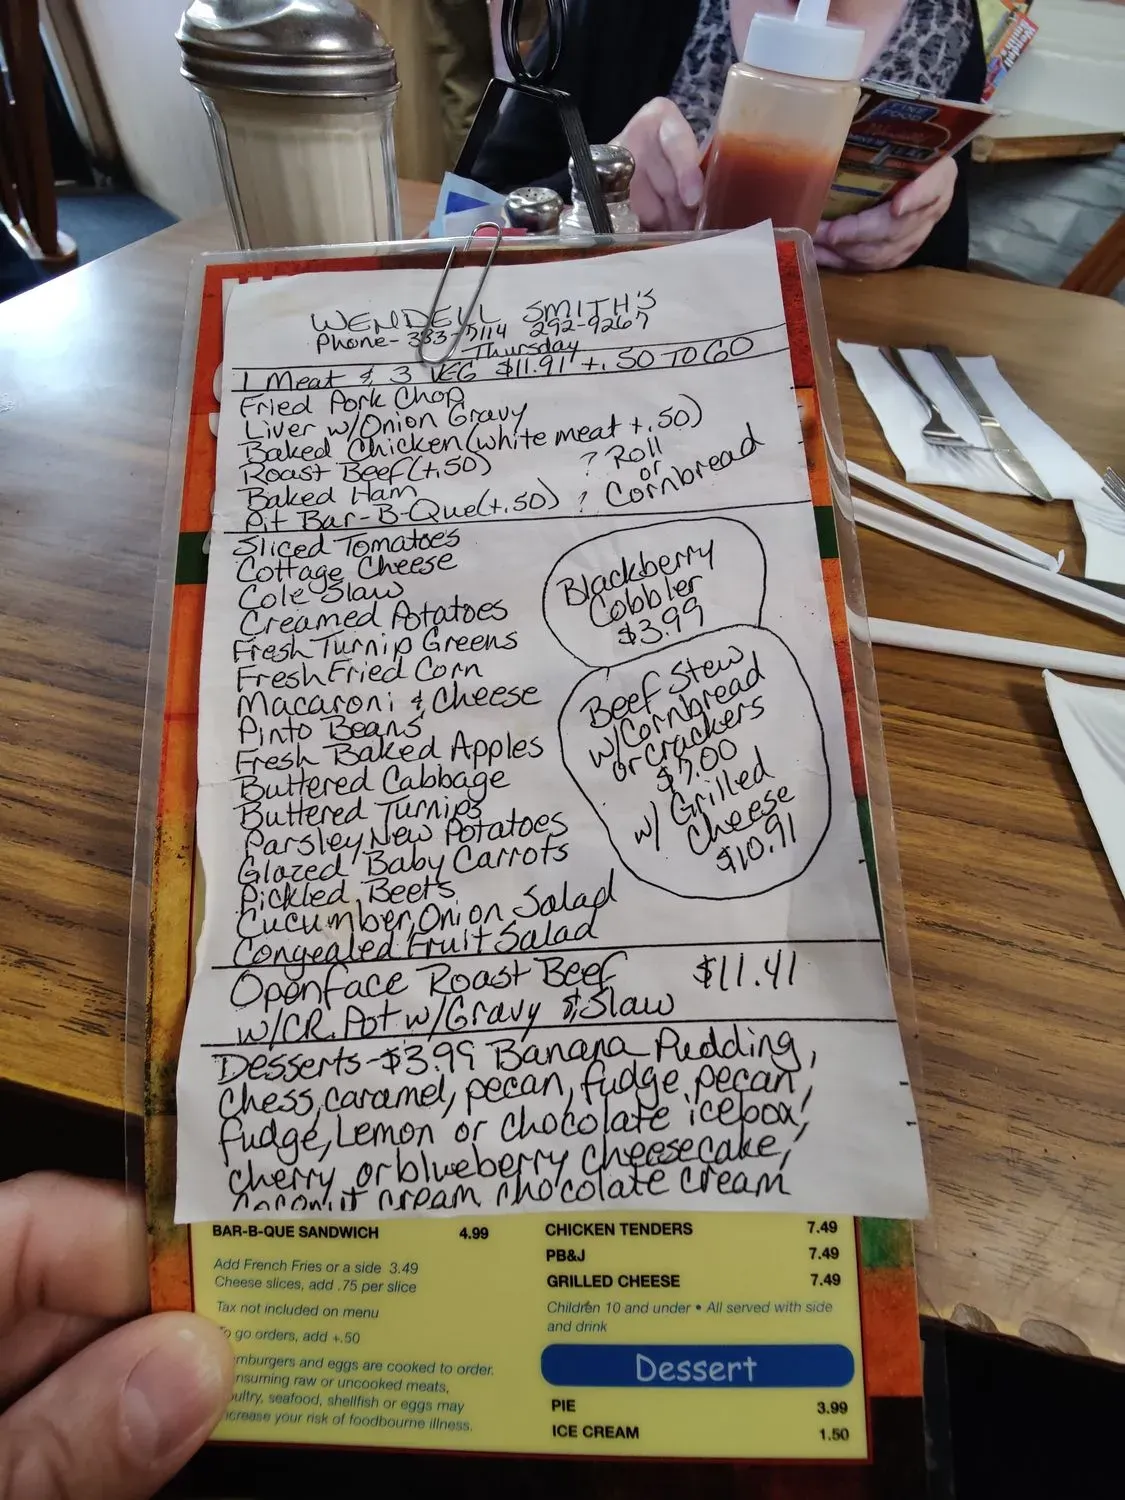 WENDELL SMITH'S
Phone- 383-7114 292-9267
Thursday
1 Meat & 3 VEG $11.91 +.50 TO GO
Fried Pork Chop
Liver w/Onion Gravy
Baked Chicken (white meat +.50)
Roast Beef (+.50)
Baked Ham
Pit Bar-B-Que (+.50)
? Roll
or
? Cornbread
Sliced Tomatoes
Cottage Cheese
Cole Slaw
Creamed Potatoes
Fresh Turnip Greens
Fresh Fried Corn
Macaroni & Cheese
Pinto Beans
Fresh Baked Apples
Buttered Cabbage
Buttered Turnips
Parsley New Potatoes
Glazed Baby Carrots
Pickled Beets
Cucumber, Onion Salad
Congealed Fruit Salad
Blackberry
Cobbler
$3.99
Beef Stew
w/Cornbread
or crackers
$7.00
w/ Grilled
Cheese
$10.91
Openface Roast Beef $11.41
w/CR. Pot w/Gravy & Slaw
Desserts-$3.99 Banana Pudding,
Chess, caramel, pecan, fudge pecan,
fudge, Lemon or chocolate icebox,
cherry or blueberry cheesecake,
coconut cream chocolate cream
BAR-B-QUE SANDWICH 4.99
Add French Fries or a side 3.49
Cheese slices, add .75 per slice
Tax not included on menu
go orders, add +.50
and eggs are cooked to order.
raw or uncooked meats,
seafood, shellfish or eggs may
your risk of foodbourne illness.
CHICKEN TENDERS 7.49
PB&J 7.49
GRILLED CHEESE 7.49
Children 10 and under • All served with side
and drink
Dessert
PIE 3.99
ICE CREAM 1.50